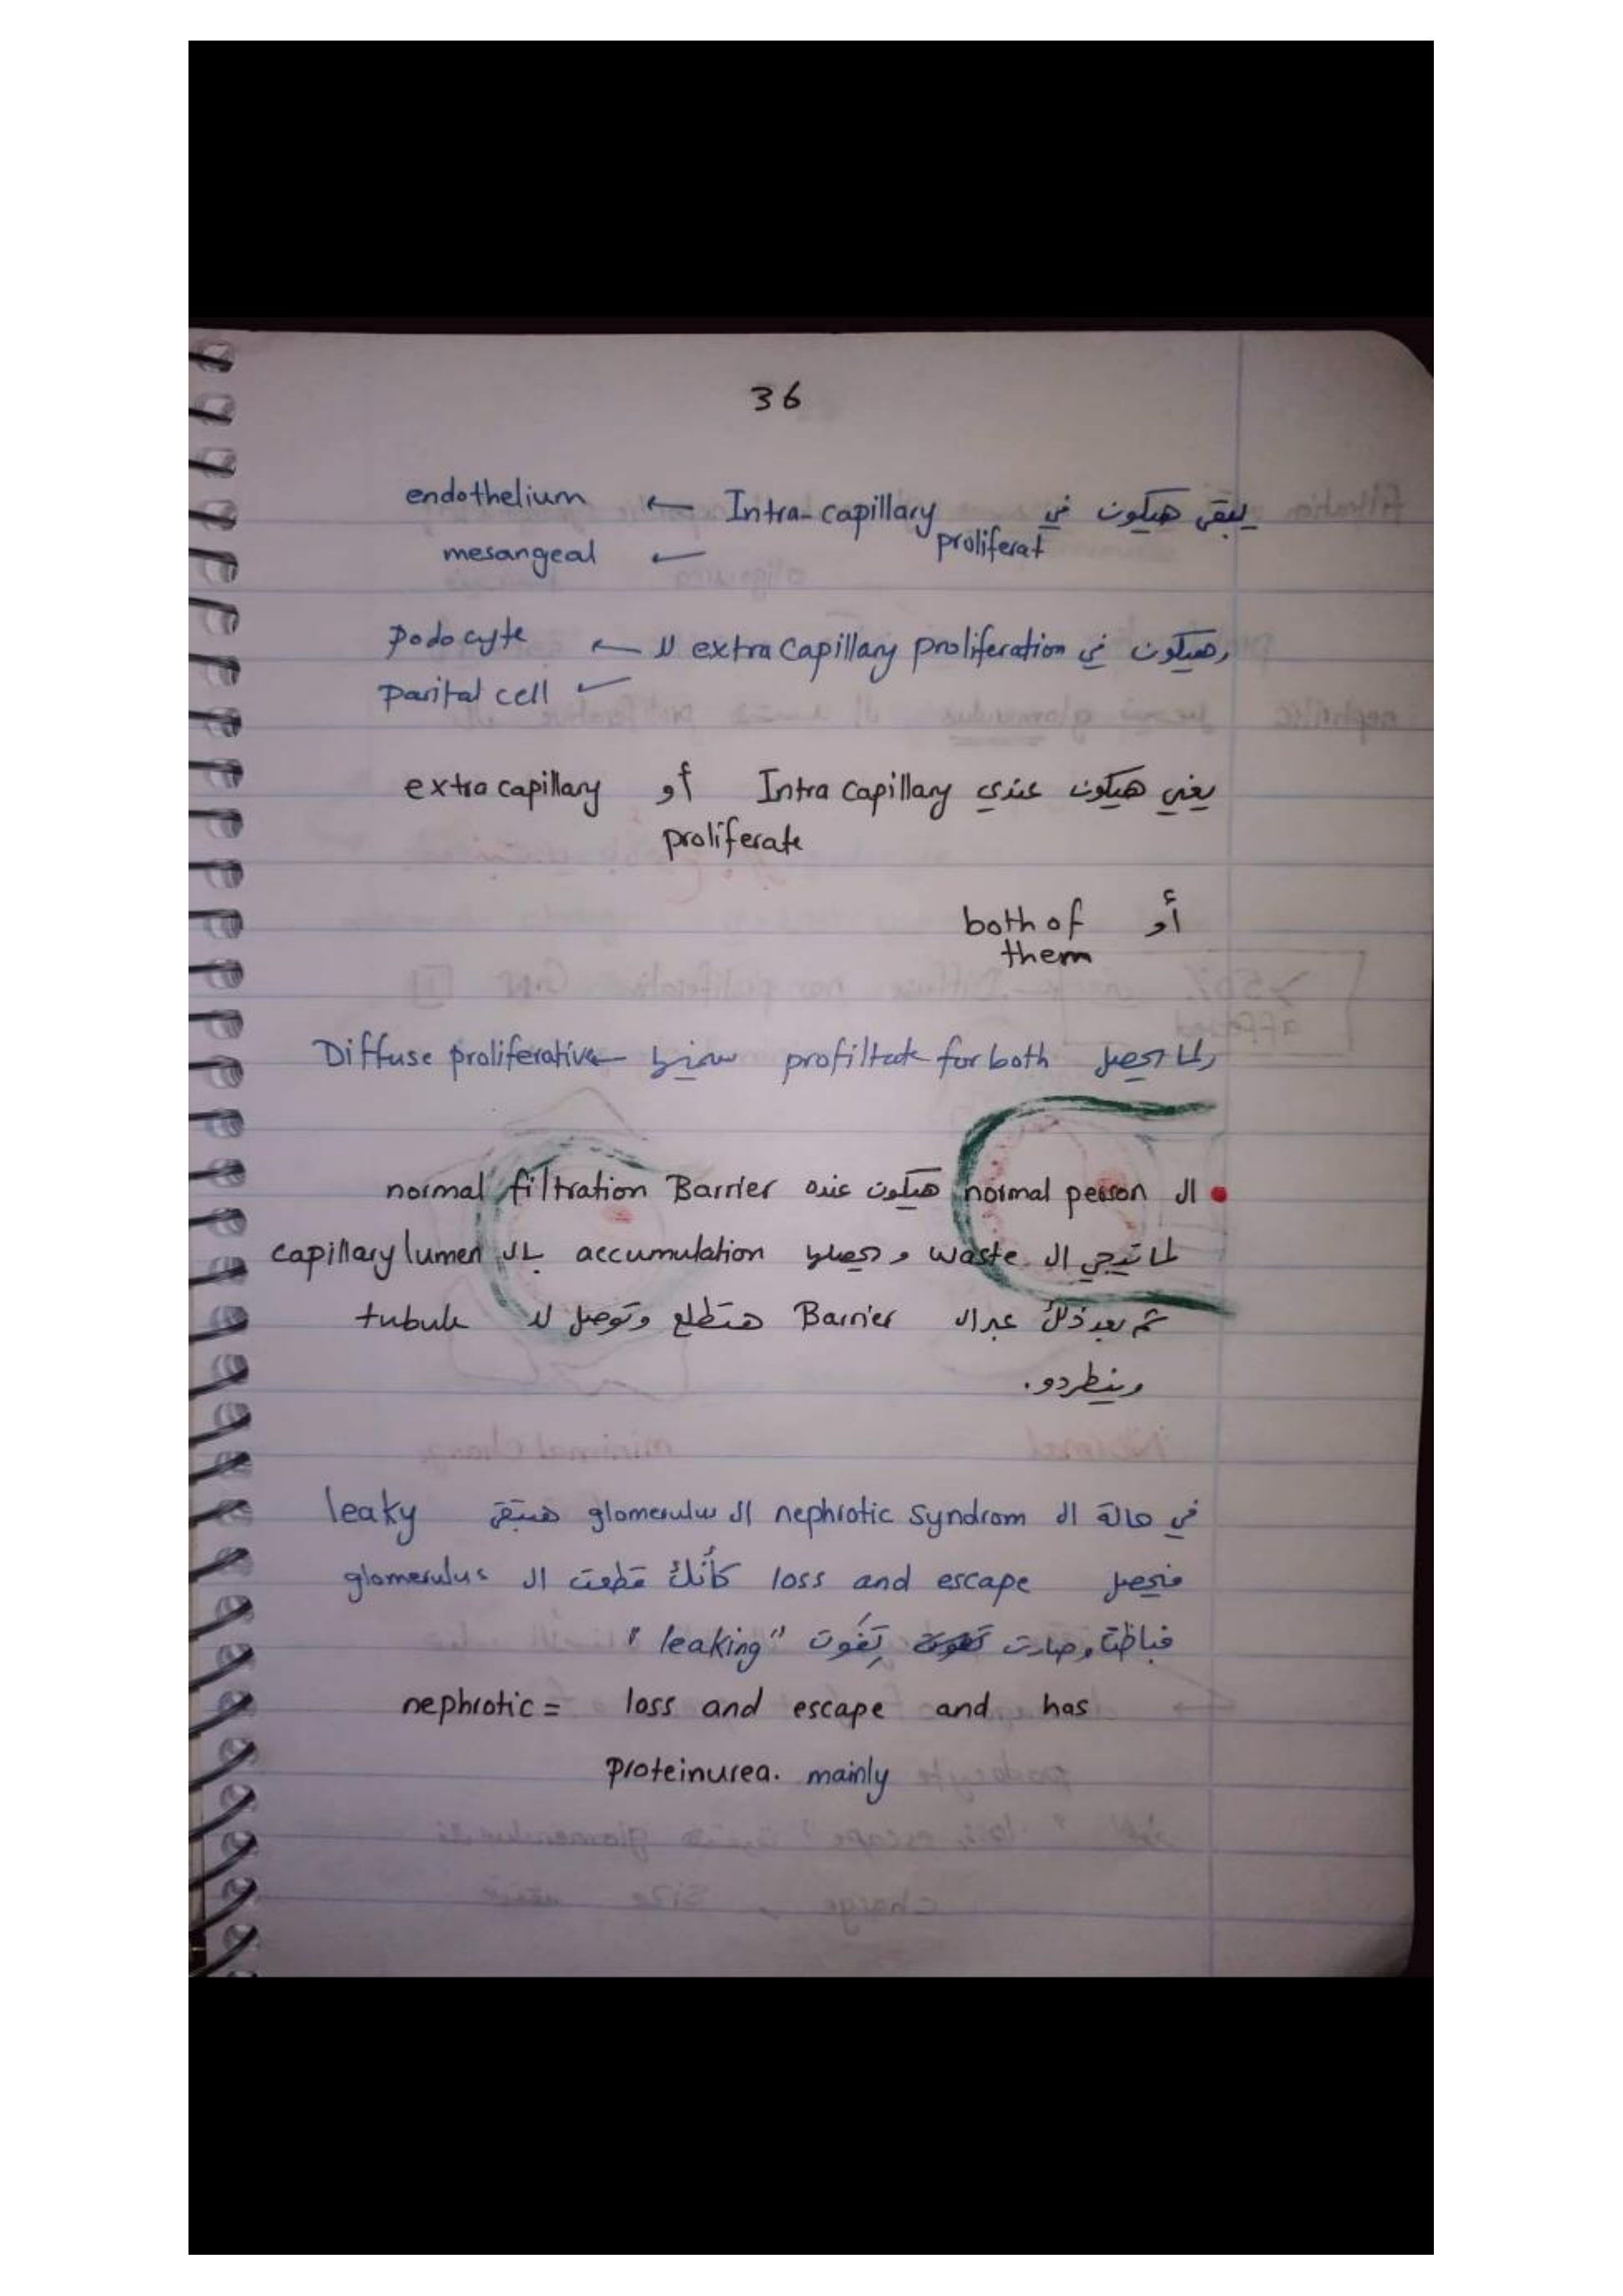 36
يبقى هيكون في Intra-capillary ← endothelium
proliferat ← mesangeal
وهيكون في extra capillary proliferation لل ← podocyte
← parital cell
يعني هيكون عندي Intra capillary أو extra capillary
proliferate
أو both of
them
ولما يحصل profiltate for both سميها Diffuse proliferative
• ال normal person هيكون عنده normal filtration Barrier
لما تيجي ال waste ويحصلها accumulation بال capillary lumen
ثم بعد ذلك عبر ال Barrier هتطلع وتوصل لل tubule
وينطردو.
في حالة ال nephrotic syndrom ال glomerulus هتبقى leaky
فيحصل loss and escape كأنك قطعت ال glomerulus
فباظت وصارت تفوت "leaking"
nephrotic = loss and escape and has
proteinurea. mainly